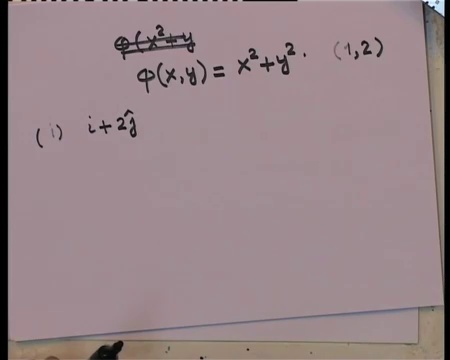 φ(x²+y
φ(x,y) = x²+y². (1,2)
(i) i+2ĵ